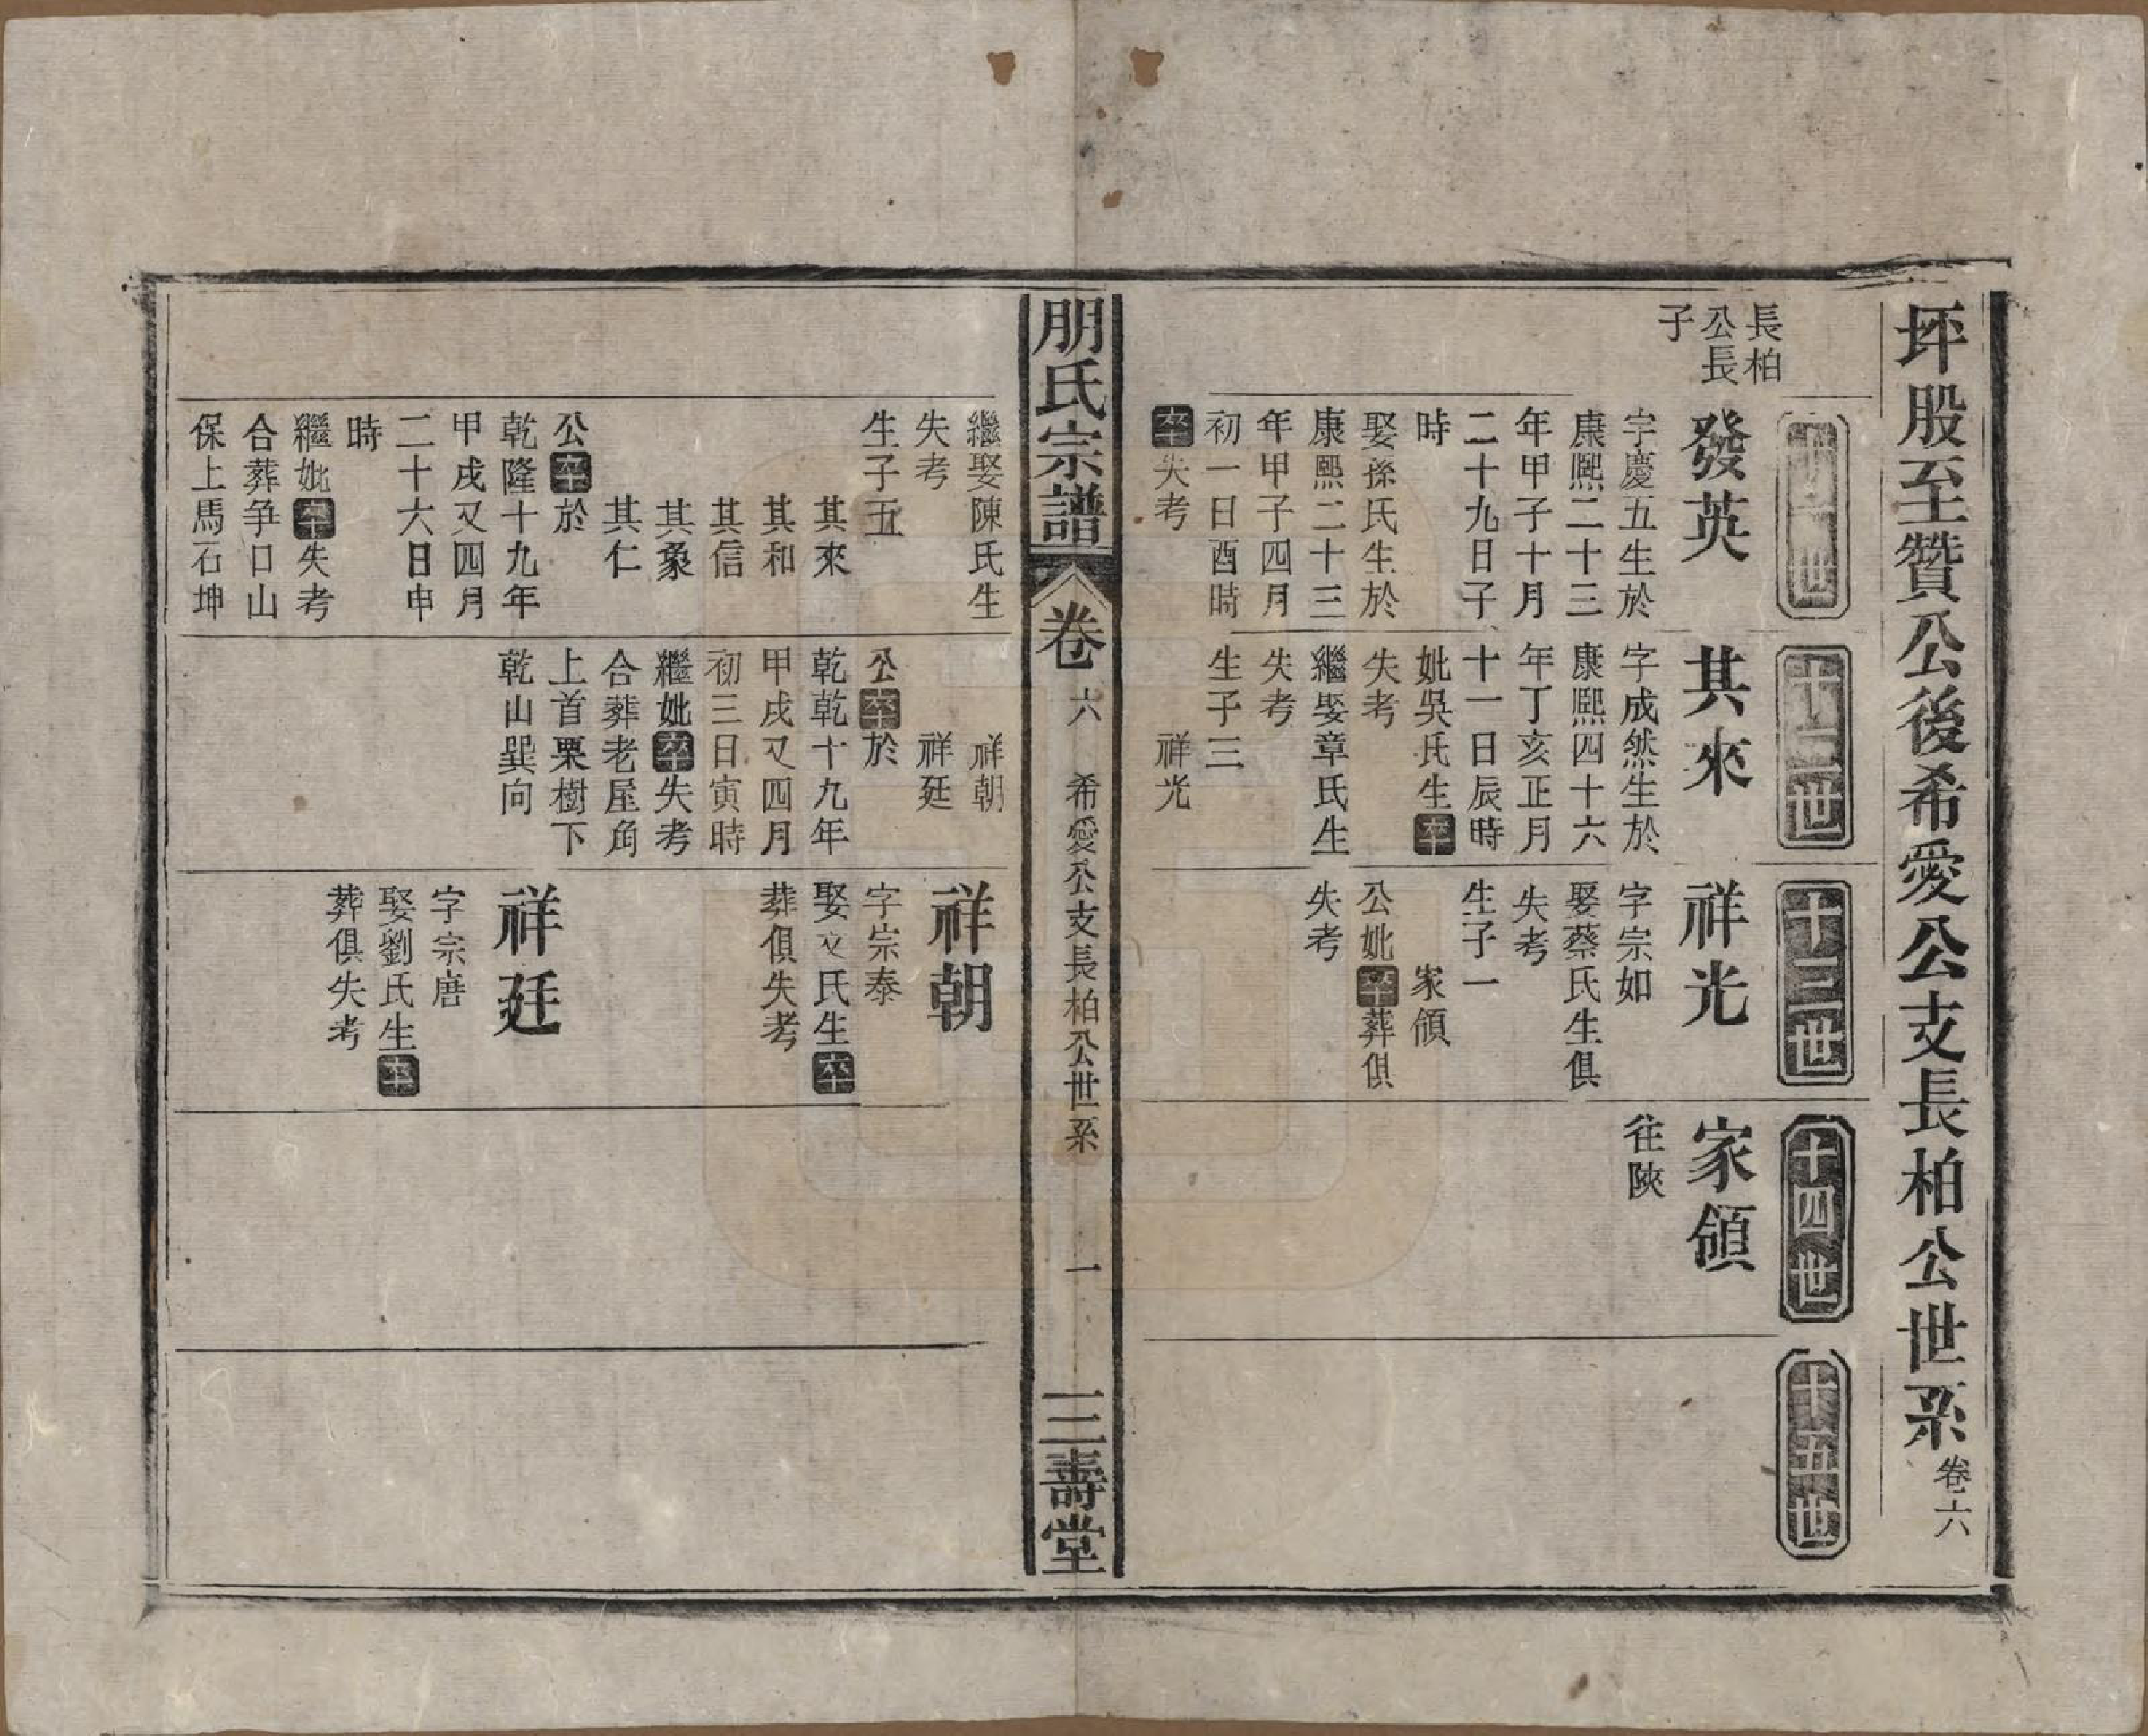 坪股至贊公後希愛公支長柏公世系 卷六
長柏
公長
子
十二世
十三世
十四世
十五世
發英
字慶五生於
康熙二十三
年甲子十月
二十九日子
時
娶孫氏生於
康熙二十三
年甲子四月
初一日酉時
卒失考
其來
字成然生於
康熙四十六
年丁亥正月
十一日辰時
妣吳氏生卒
失考
繼娶章氏生
失考
生子三
祥光
祥光
字宗如
娶蔡氏生俱
失考
生子一
家頜
公妣卒葬俱
失考
家頜
往陝
朋氏宗譜
卷六 希愛公支長柏公世系 一
三壽堂
繼娶陳氏生
失考
生子五
其來
其和
其信
其象
其仁
公卒於
乾隆十九年
甲戌又四月
二十六日申
時
繼妣卒失考
合葬爭口山
保上馬石坤
祥朝
祥廷
公卒於
乾乾十九年
甲戌又四月
初三日寅時
繼妣卒失考
合葬老屋角
上首栗樹下
乾山巽向
祥朝
字宗泰
娶文氏生卒
葬俱失考
祥廷
字宗唐
娶劉氏生卒
葬俱失考